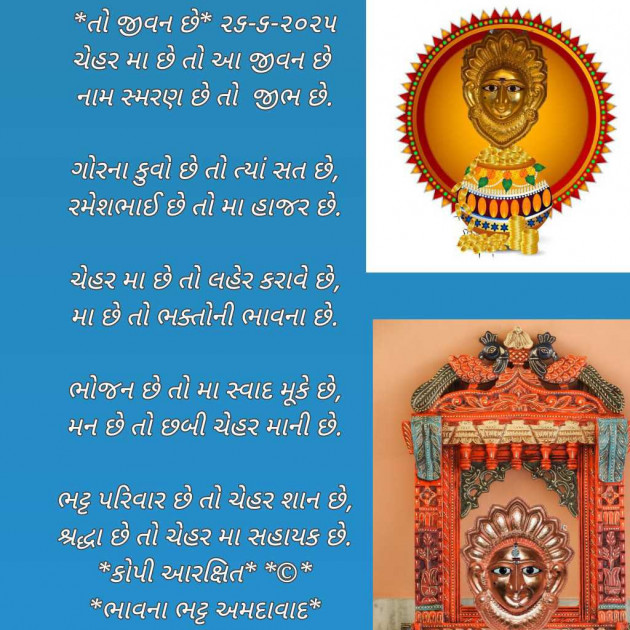 *તો જીવન છે* ૨૬-૬-૨૦૨૫
ચેહર મા છે તો આ જીવન છે
નામ સ્મરણ છે તો જીભ છે.
ગોરના કુવો છે તો ત્યાં સત છે,
રમેશભાઈ છે તો મા હાજર છે.
ચેહર મા છે તો લહેર કરાવે છે,
મા છે તો ભક્તોની ભાવના છે.
ભોજન છે તો મા સ્વાદ મૂકે છે,
મન છે તો છબી ચેહર માની છે.
ભટ્ટ પરિવાર છે તો ચેહર શાન છે,
શ્રદ્ધા છે તો ચેહર મા સહાયક છે.
*કોપી આરક્ષિત* *©*
*ભાવના ભટ્ટ અમદાવાદ*